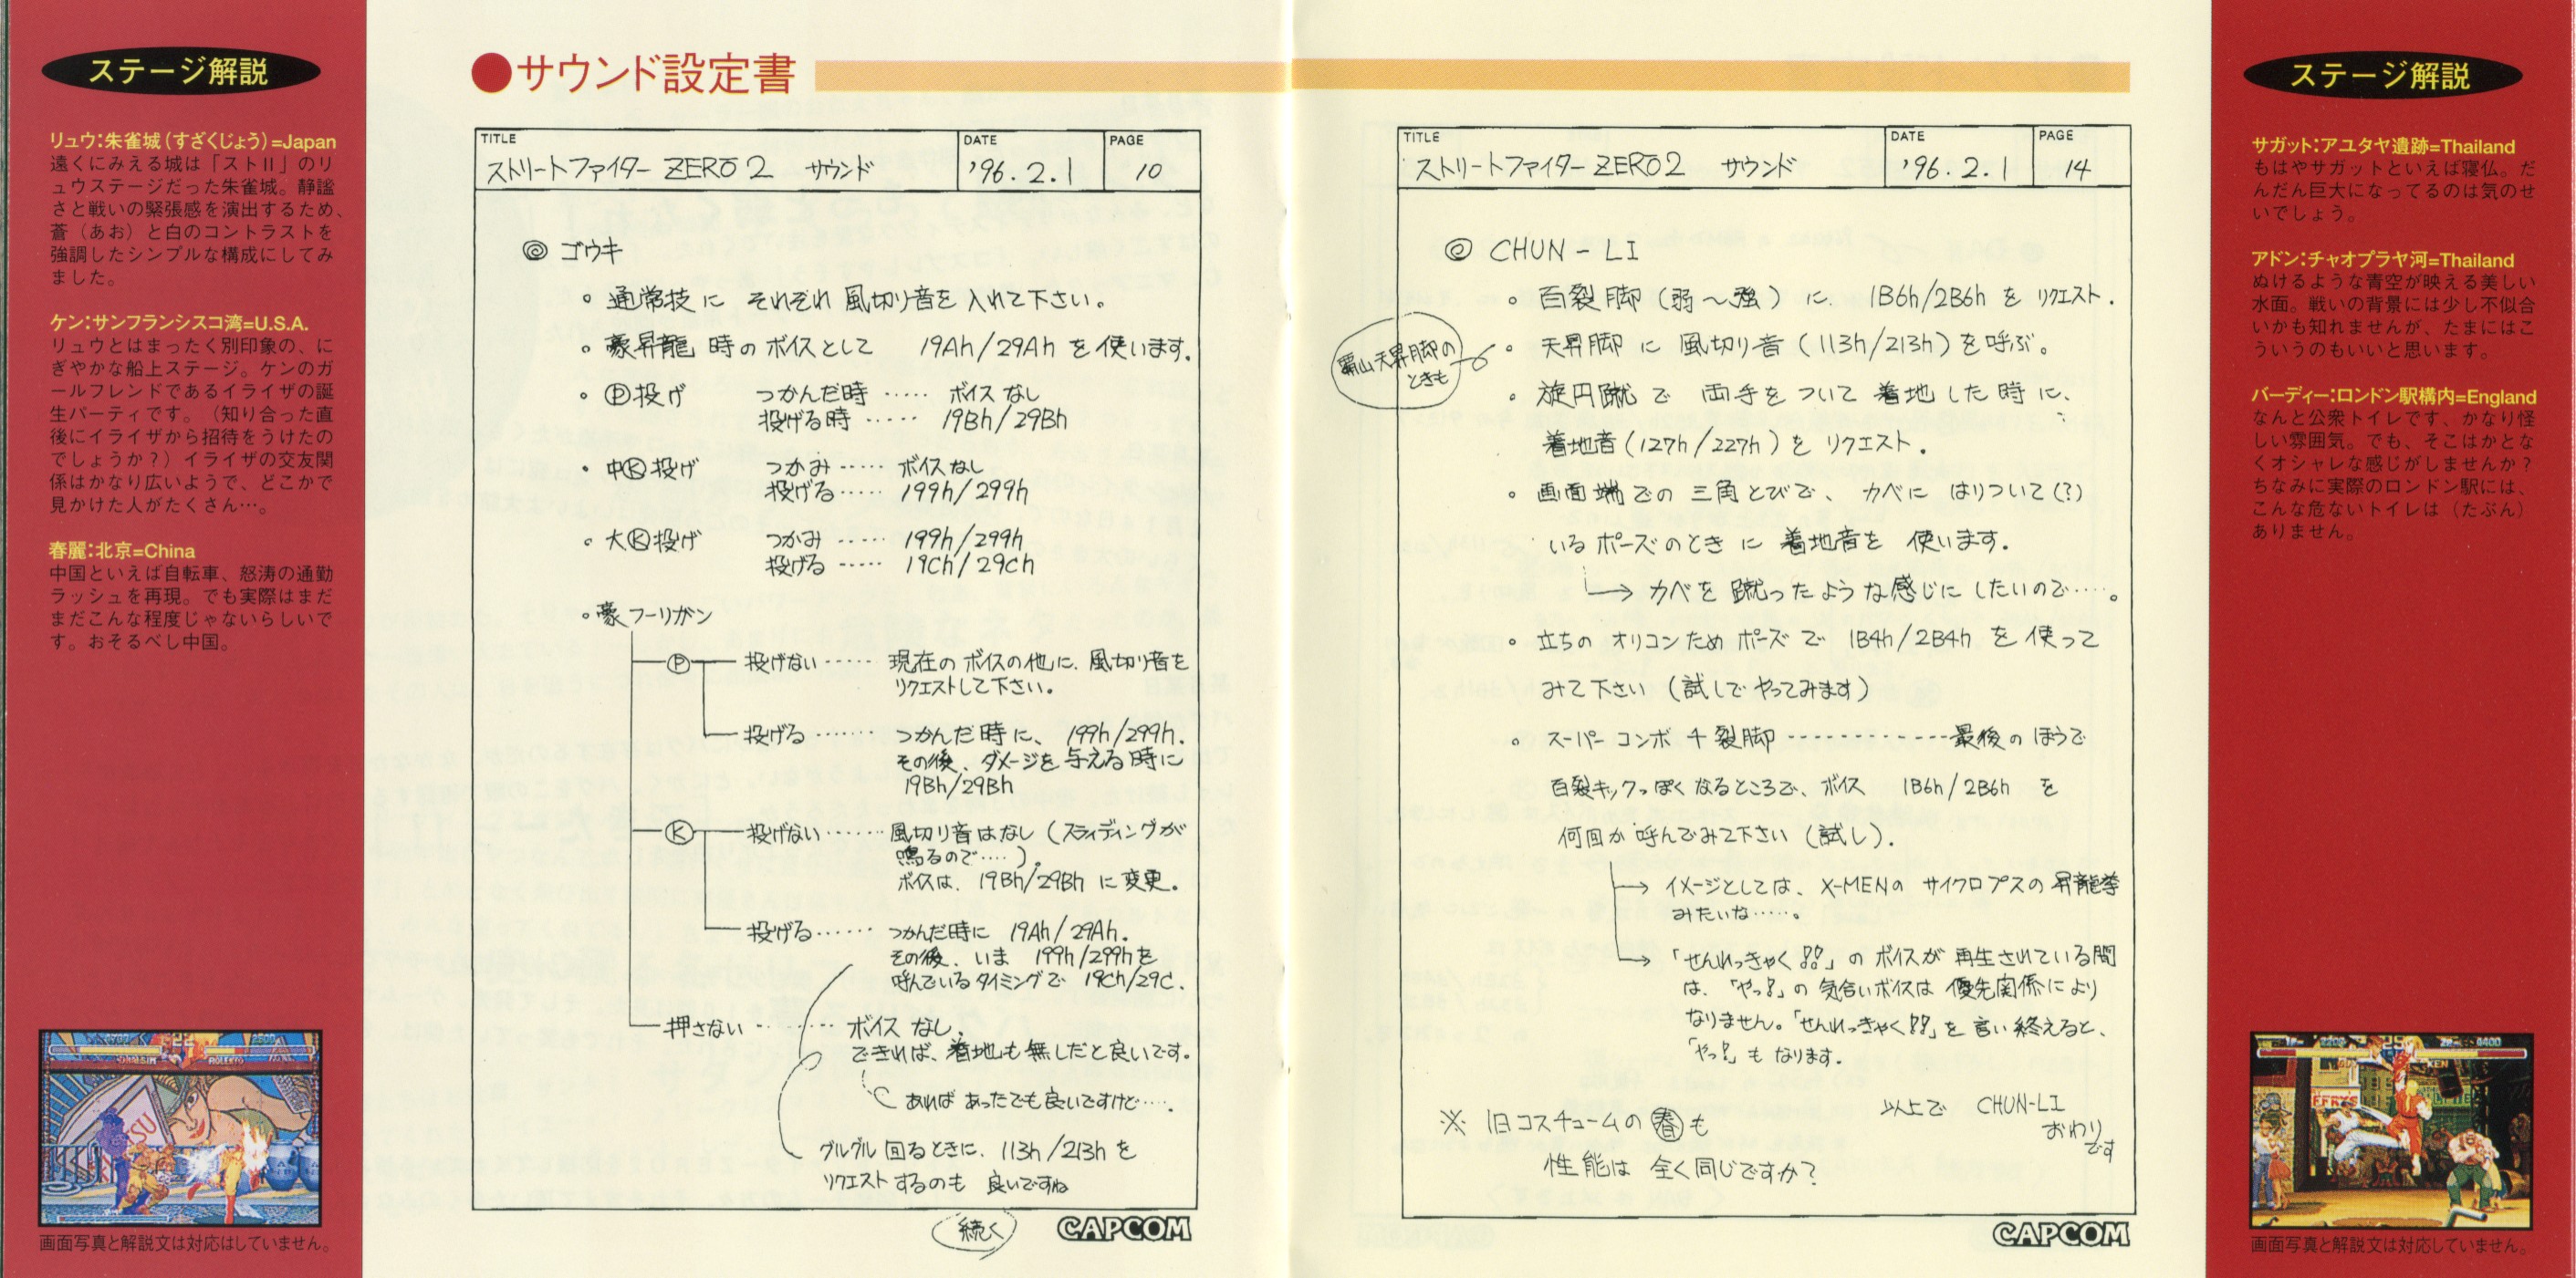 ステージ解説
リュウ：朱雀城（すざくじょう）=Japan
遠くにみえる城は「ストⅡ」のリ
ュウステージだった朱雀城。静謐
さと戦いの緊張感を演出するため、
蒼（あお）と白のコントラストを
強調したシンプルな構成にしてみ
ました。
ケン：サンフランシスコ湾=U.S.A.
リュウとはまったく別印象の、に
ぎやかな船上ステージ。ケンのガ
ールフレンドであるイライザの誕
生パーティです。（知り合った直
後にイライザから招待をうけたの
でしょうか？）イライザの交友関
係はかなり広いようで、どこかで
見かけた人がたくさん…。
春麗：北京=China
中国といえば自転車、怒涛の通勤
ラッシュを再現。でも実際はまだ
まだこんな程度じゃないらしいで
す。おそるべし中国。
画面写真と解説文は対応はしていません。
●サウンド設定書
TITLE
ストリートファイター ZERO 2 サウンド
DATE
'96. 2. 1
PAGE
10
◎ ゴウキ
。通常技に それぞれ 風切り音を 入れて下さい。
。豪昇龍 時の ボイスとして 19Ah/29Ah を使います。
・Ⓟ投げ つかんだ時 ‥‥‥ ボイス なし
投げる時 ‥‥‥ 19Bh/29Bh
・中Ⓚ投げ つかみ ‥‥‥ ボイスなし
投げる ‥‥‥ 199h/299h
。大Ⓚ投げ つかみ ‥‥‥ 199h/299h
投げる ‥‥‥ 19Ch/29Ch
。豪フーリガン
Ⓟ 投げない ‥‥‥ 現在の ボイスの他に、風切り音を
リクエストして下さい。
投げる ‥‥‥ つかんだ時に、199h/299h.
その後、ダメージを 与える時に
19Bh/29Bh
Ⓚ 投げない ‥‥‥ 風切り音はなし（スライディングが
鳴るので‥‥）。
ボイスは、19Bh/29Bh に変更。
投げる ‥‥‥ つかんだ時に 19Ah/29Ah.
その後、いま 199h/299hを
呼んでいるタイミングで 19Ch/29C.
押さない ‥‥‥ ボイス なし、
できれば、着地も無しだと良いです。
あれば あったでも良いですけど‥‥。
グルグル 回るときに、113h/213hを
リクエストするのも 良いですね
続く
CAPCOM
TITLE
ストリートファイター ZERO 2 サウンド
DATE
'96. 2. 1
PAGE
14
◎ CHUN-LI
。百裂脚（弱〜強）に、1B6h/2B6h を リクエスト.
。天昇脚 に 風切り音（113h/213h）を呼ぶ。
覇山天昇脚の
ときも
。旋円蹴 で 両手を ついて 着地した時に、
着地音（127h/227h）を リクエスト.
。画面端での 三角とびで、カベに はりついて（？）
いる ポーズのとき に 着地音を 使います.
→ カベを 蹴ったような感じに したいので‥‥。
・立ちの オリコンため ポーズ で 1B4h/2B4h を 使って
みて下さい（試しで やってみます）
。スーパー コンボ 千裂脚 ------------最後の ほうで
百裂キックっぽく なるところで、ボイス 1B6h/2B6h を
何回か 呼んでみて下さい（試し）.
→ イメージとしては、X-MENの サイクロプスの 昇龍拳
みたいな‥‥。
→ 「せんれっきゃく!!」の ボイスが 再生されている間
は、「やっ!」の 気合いボイスは 優先関係により
なりません。「せんれっきゃく!!」を 言い終えると、
「やっ!」も なります.
以上で CHUN-LI
おわり
です
※ 旧コスチュームの ㊥春も
性能は 全く同じですか？
CAPCOM
ステージ解説
サガット：アユタヤ遺跡=Thailand
もはやサガットといえば寝仏。だ
んだん巨大になってるのは気のせ
いでしょう。
アドン：チャオプラヤ河=Thailand
ぬけるような青空が映える美しい
水面。戦いの背景には少し不似合
いかも知れませんが、たまにはこ
ういうのもいいと思います。
バーディー：ロンドン駅構内=England
なんと公衆トイレです、かなり怪
しい雰囲気。でも、そこはかとな
くオシャレな感じがしませんか？
ちなみに実際のロンドン駅には、
こんな危ないトイレは（たぶん）
ありません。
画面写真と解説文は対応していません。